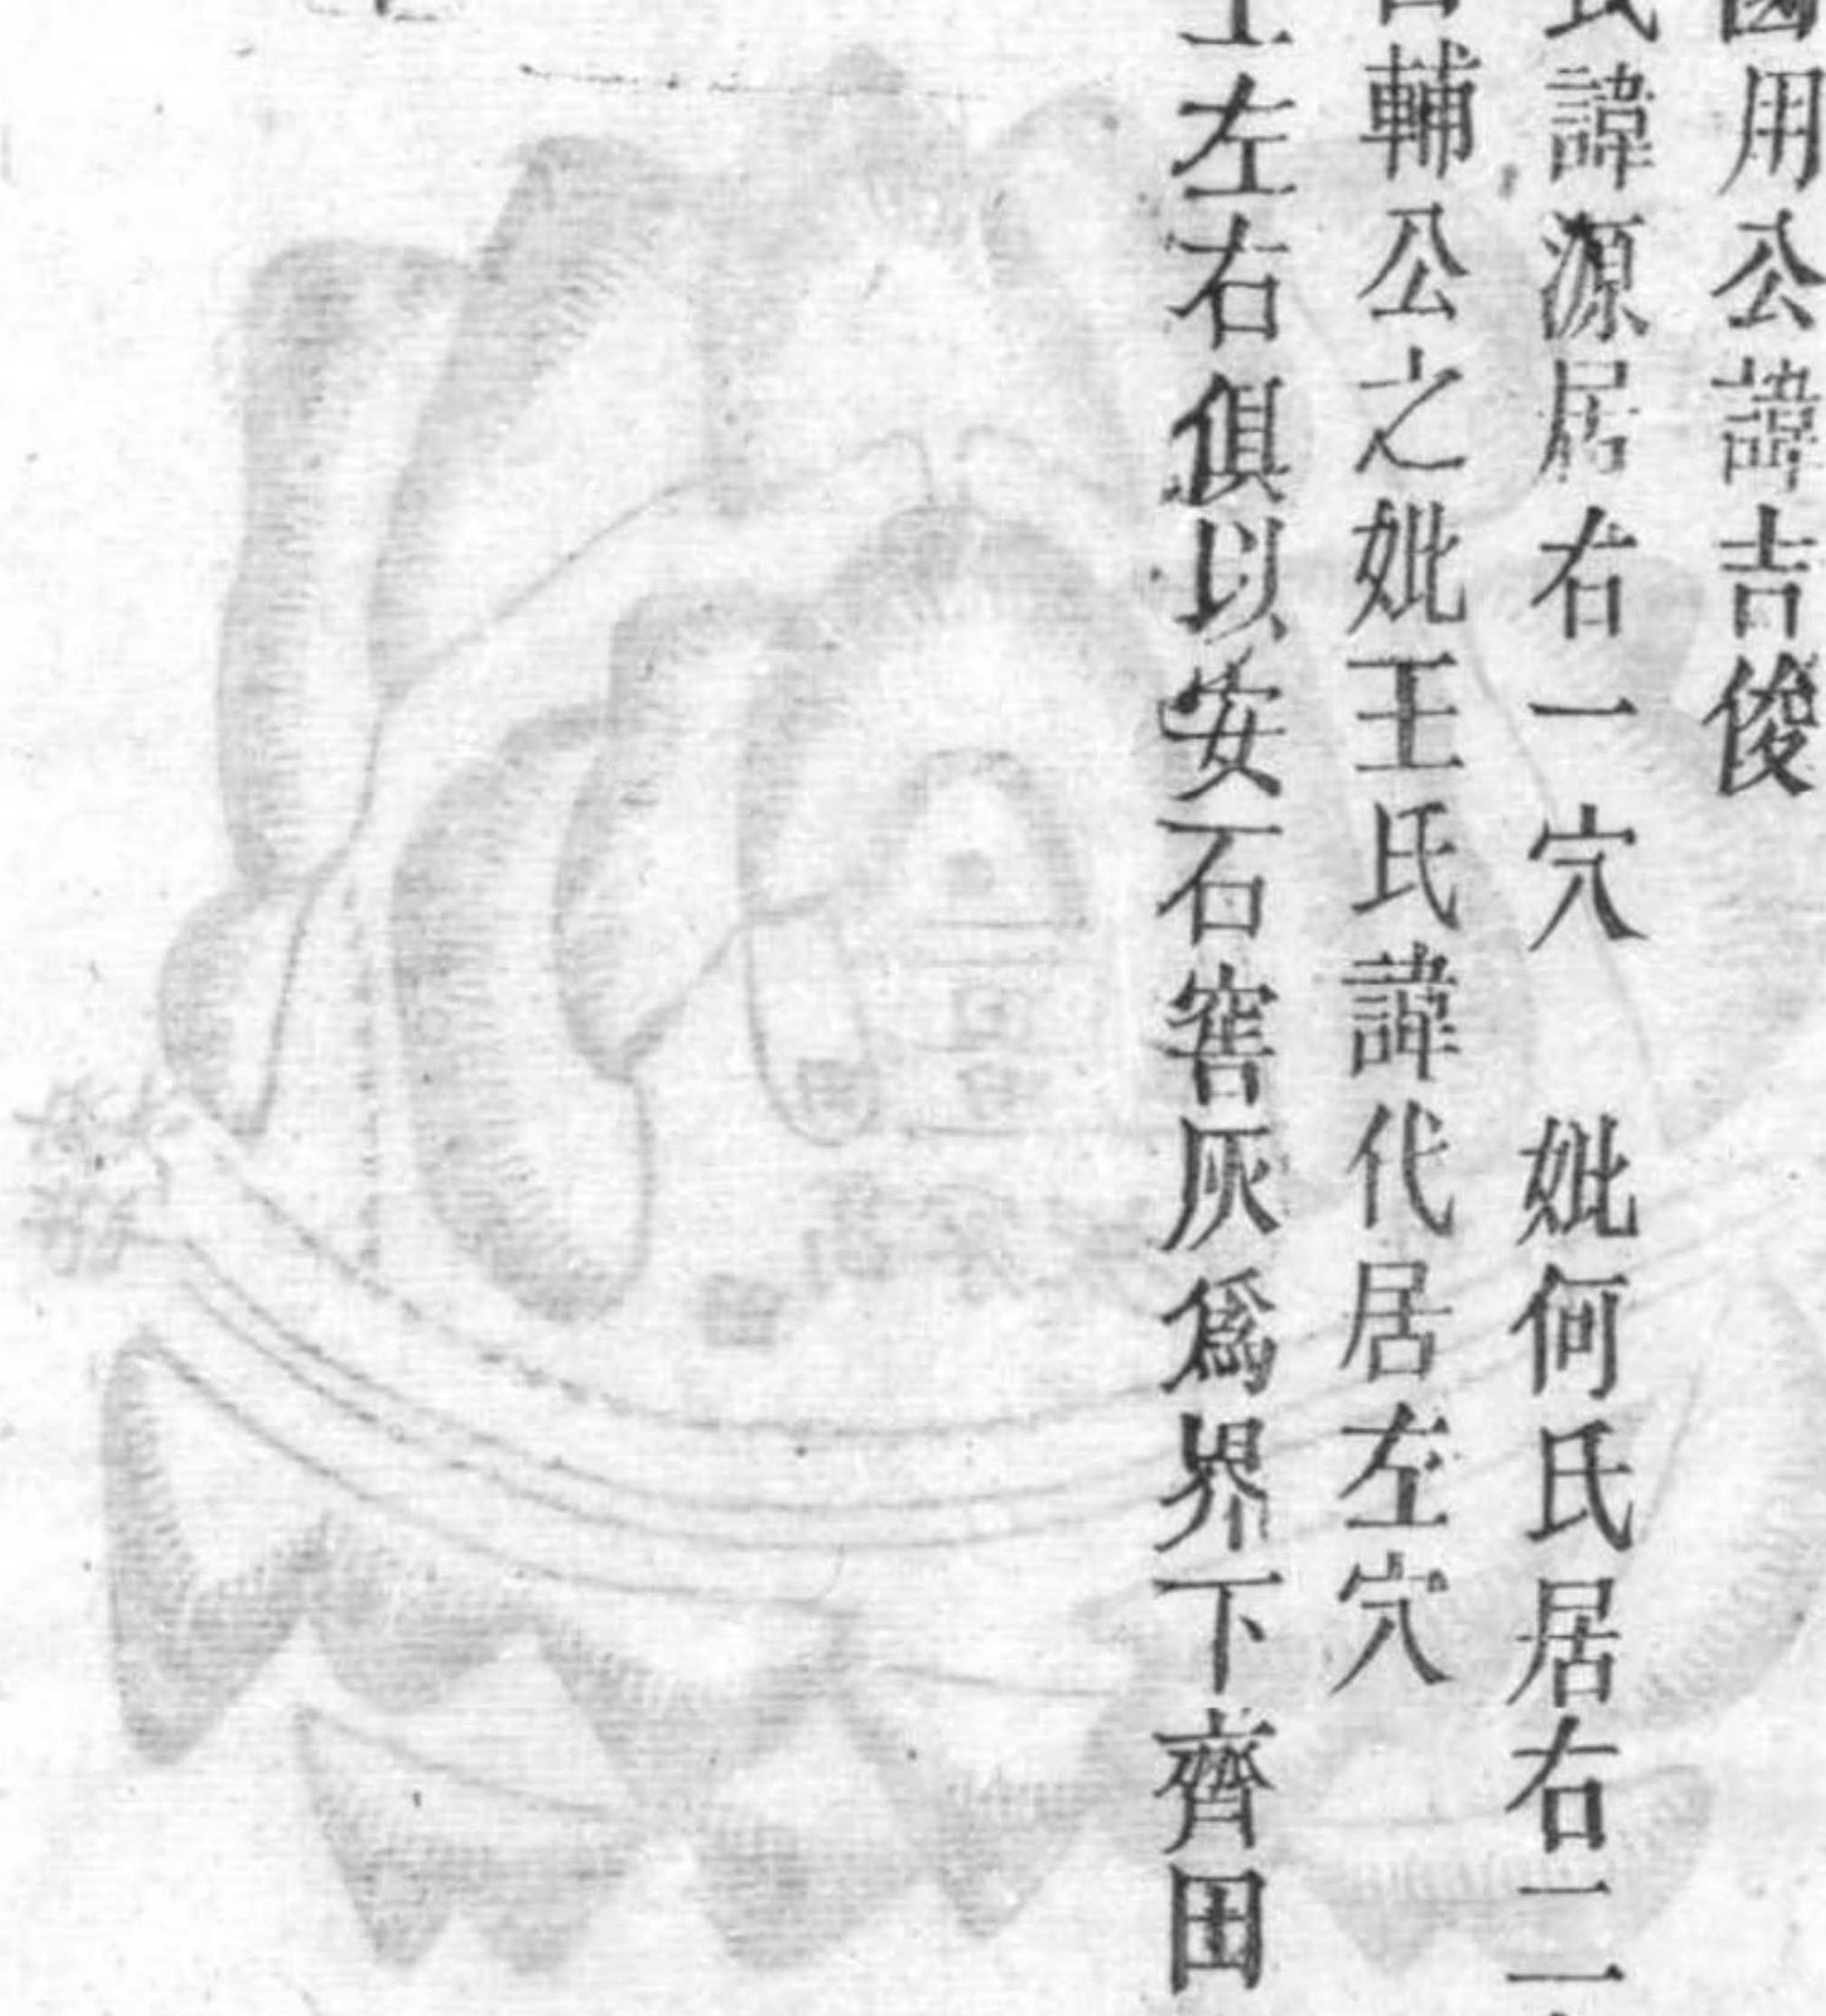 用公諱吉俊
氏諱源居右一穴　妣何氏居右二
輔公之妣王氏諱代居左穴
左右俱以安石窖灰爲界下齊田